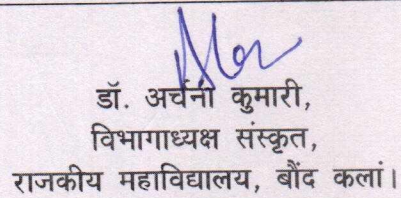 डॉ. अर्चना कुमारी,
विभागाध्यक्ष संस्कृत,
राजकीय महाविद्यालय, बौंद कलां।